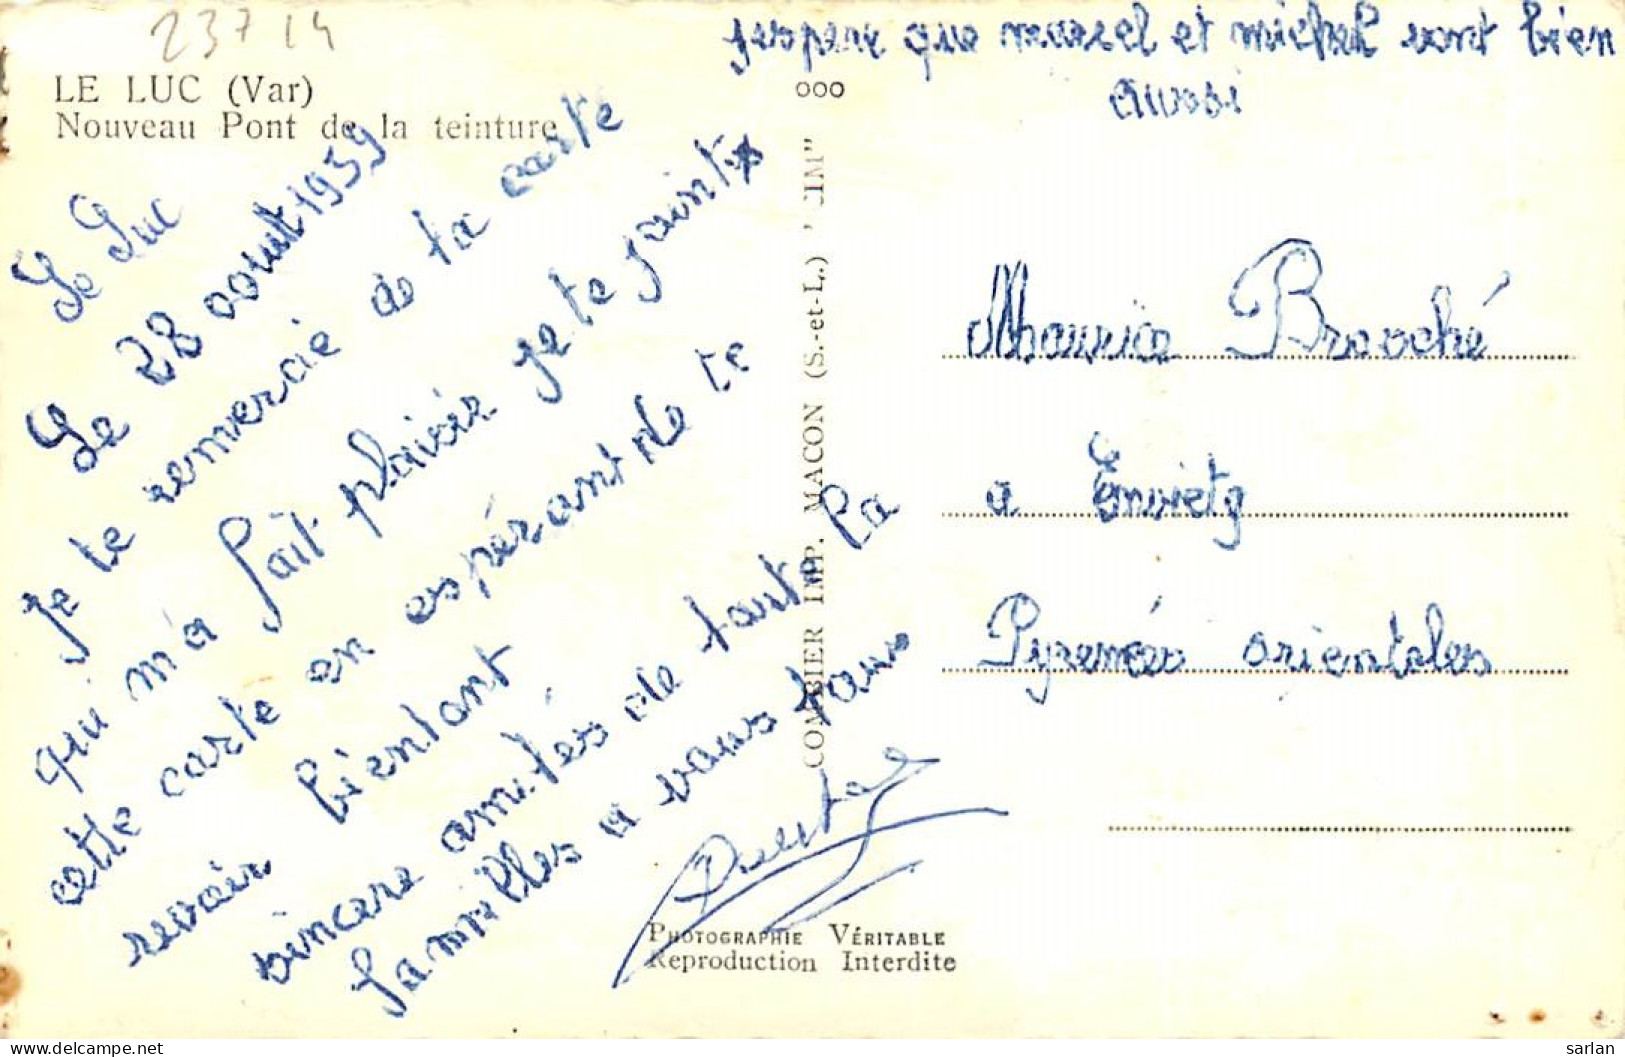 23714
LE LUC (Var)
Nouveau Pont de la teinture
Le Luc
Le 28 aout 1959
Je te remercie de ta carte
qui m'a fait plaisir je te joint
cette carte en espérant de te
revoir bientant
sincere amités de toute la
familles a vous tous
Jespere que marcel et michel sont bien
aussi
000
COMBIER IMP. MACON (S.-et-L.) "CIM"
Maurice Broché
a Enveitg
Pyrenées orientales
PHOTOGRAPHIE VÉRITABLE
Reproduction Interdite
sarlan